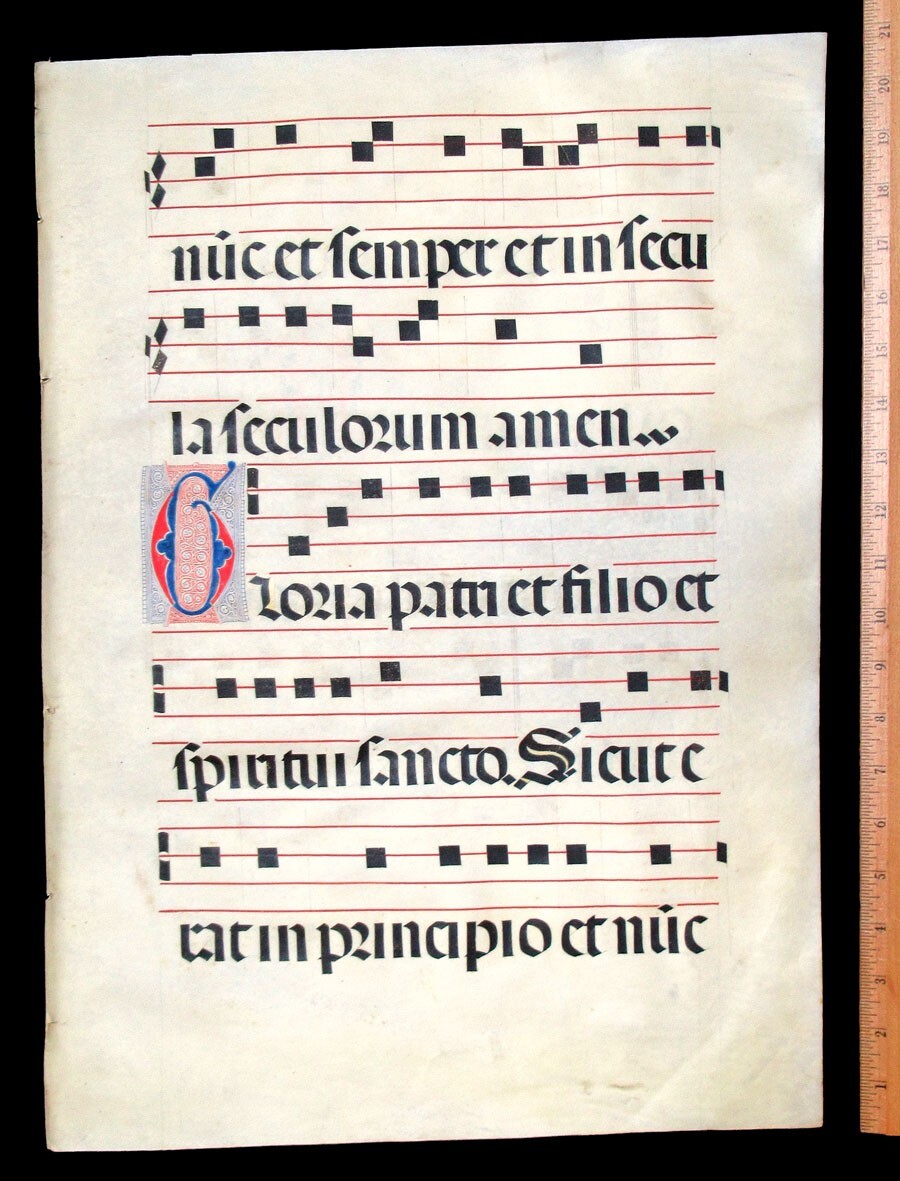 nūc et semper et in secu
la seculorum amen
Gloria patri et filio et
spiritui sancto. Sicut e
rat in principio et nūc
21
20
19
18
17
16
15
14
13
12
11
10
9
8
7
6
5
4
3
2
1